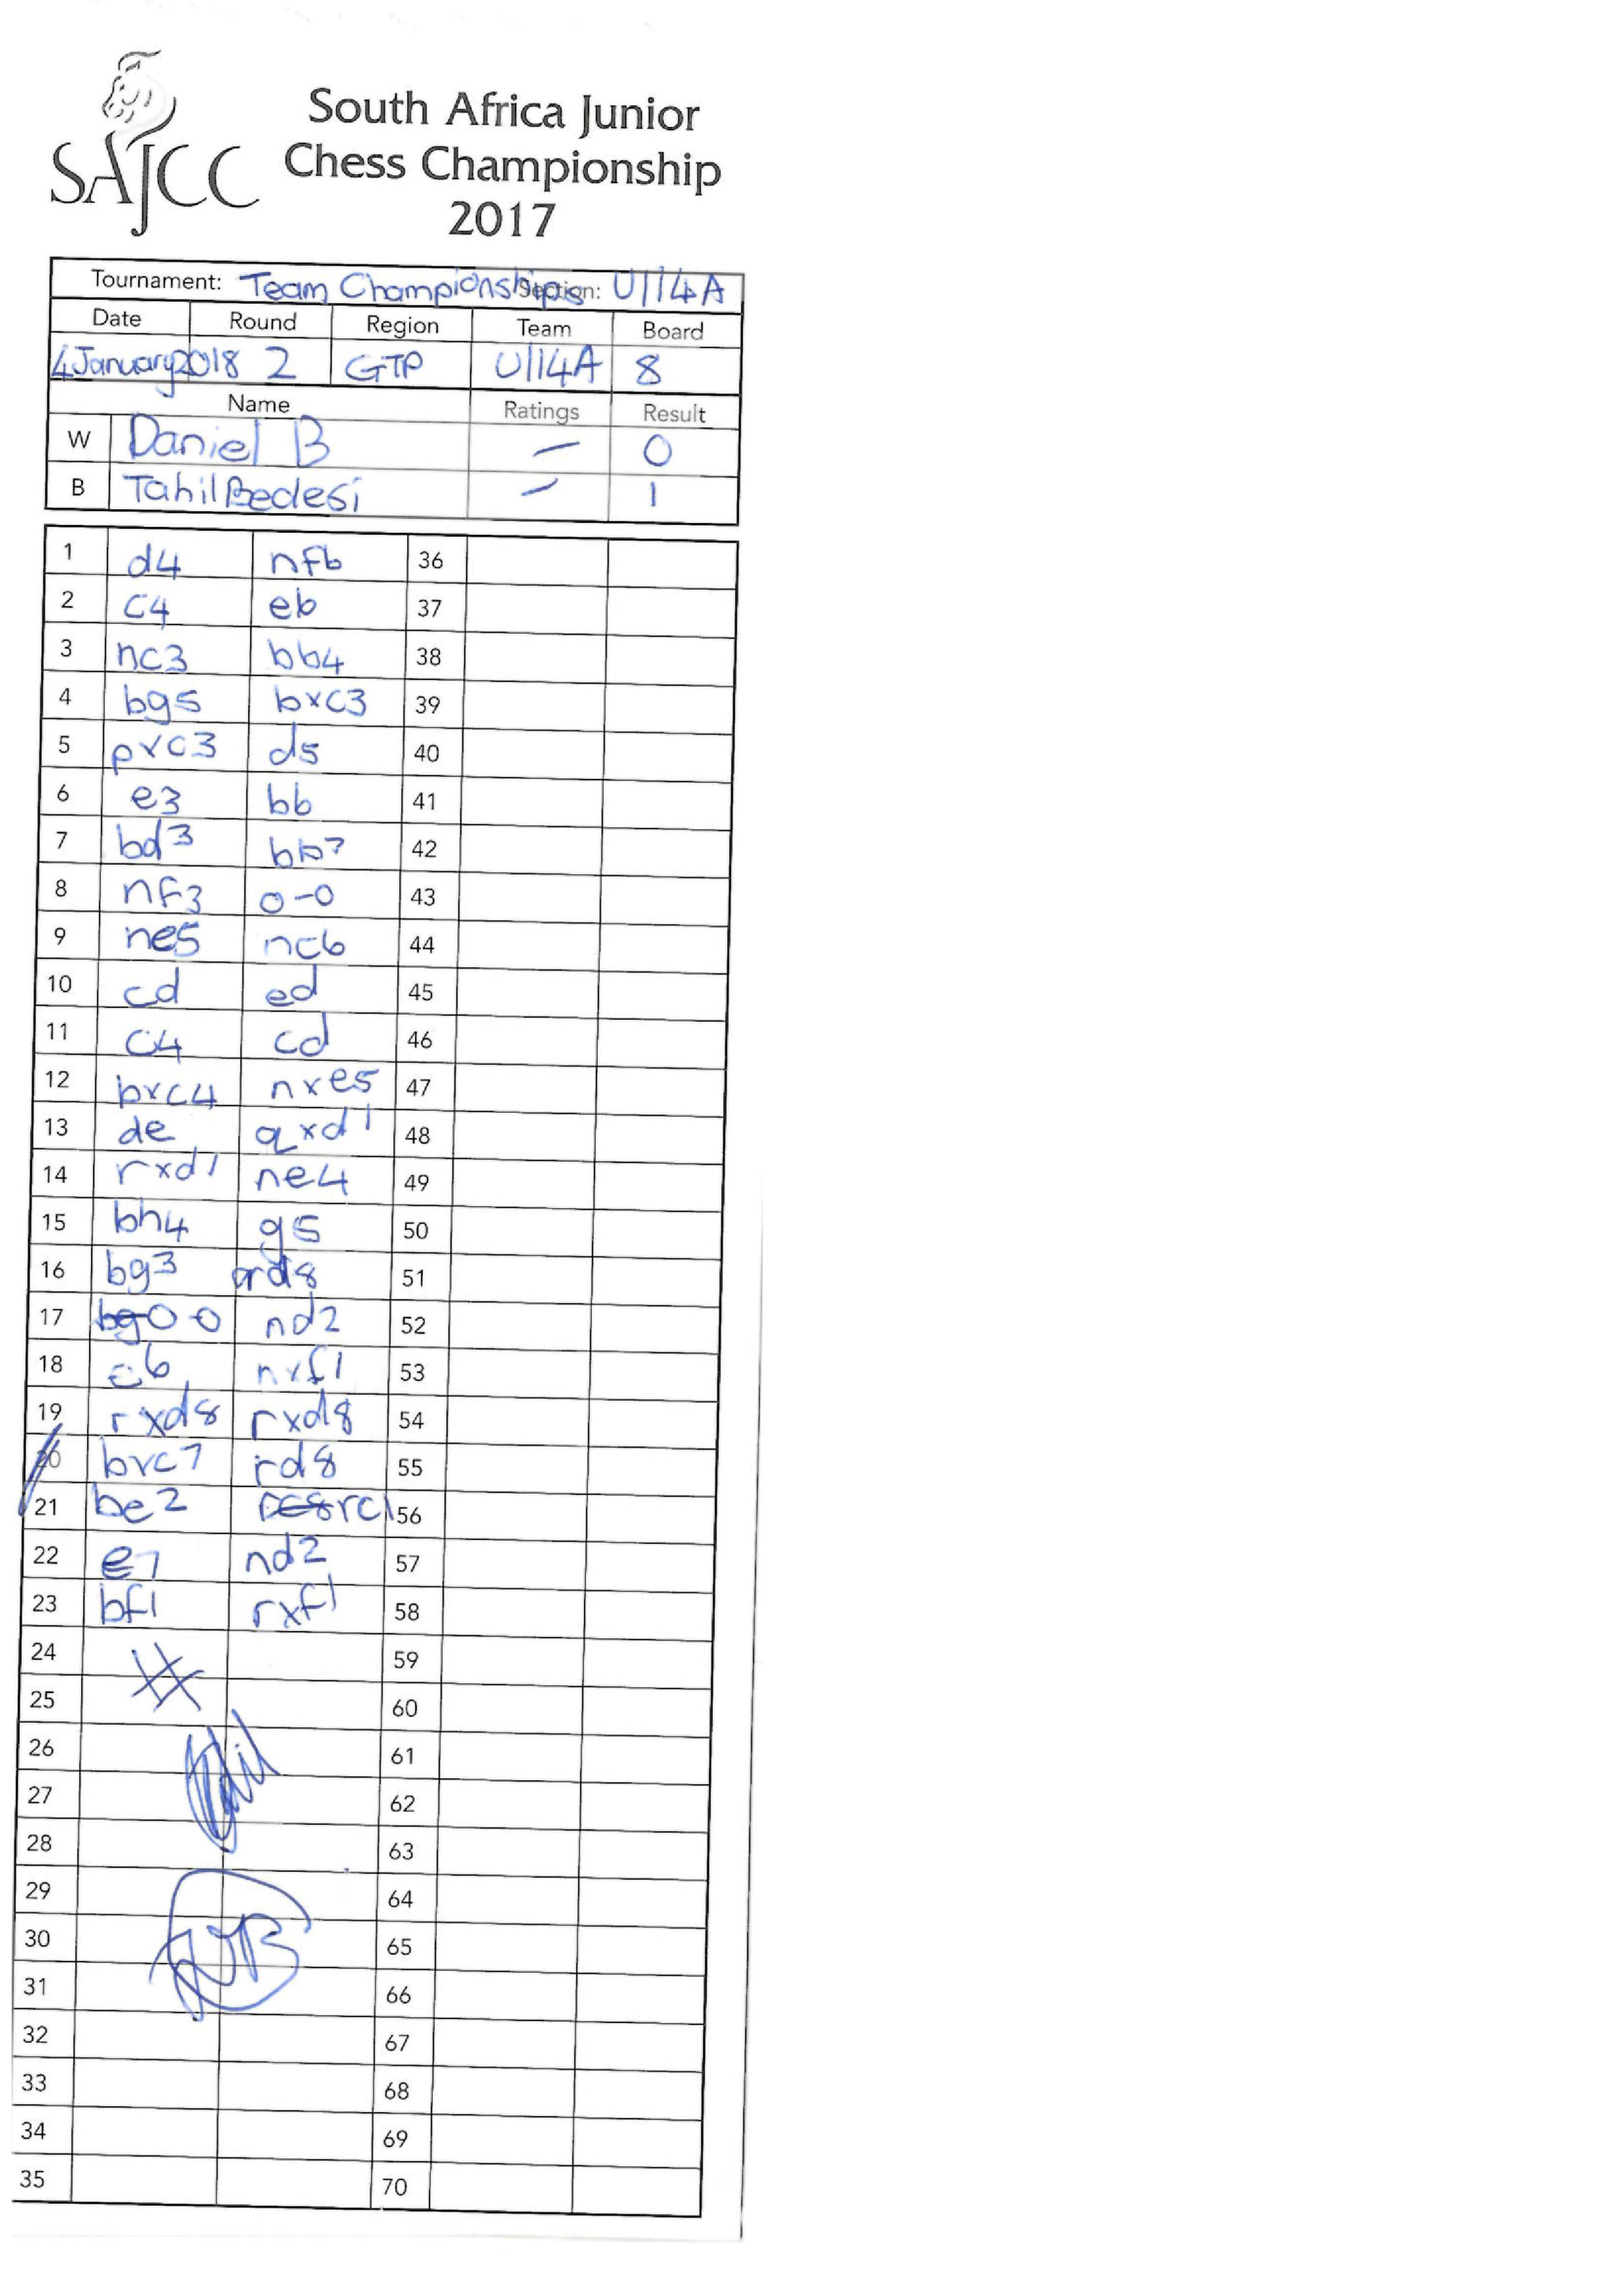 SAJCC
South Africa Junior
Chess Championship
2017
Tournament: Team Championships Section: U/14A
Date Round Region Team Board
4 January 2018 2 GTP U/14A 8
Name Ratings Result
W Daniel B - 0
B Tahil Bedesi - 1
1 d4 nf6 36
2 c4 e6 37
3 nc3 bb4 38
4 bg5 bxc3 39
5 pxc3 d5 40
6 e3 b6 41
7 bd3 bb7 42
8 nf3 0-0 43
9 ne5 nc6 44
10 cd ed 45
11 c4 cd 46
12 bxc4 nxe5 47
13 de qxd1 48
14 rxd1 ne4 49
15 bh4 g5 50
16 bg3 rd8 51
17 0-0 nd2 52
18 e6 nxf1 53
19 rxd8 rxd8 54
20 bxc7 rd8 55
21 be2 rc1 56
22 e7 nd2 57
23 bf1 rxf1 58
24 # 59
25 60
26 61
27 62
28 63
29 64
30 65
31 66
32 67
33 68
34 69
35 70